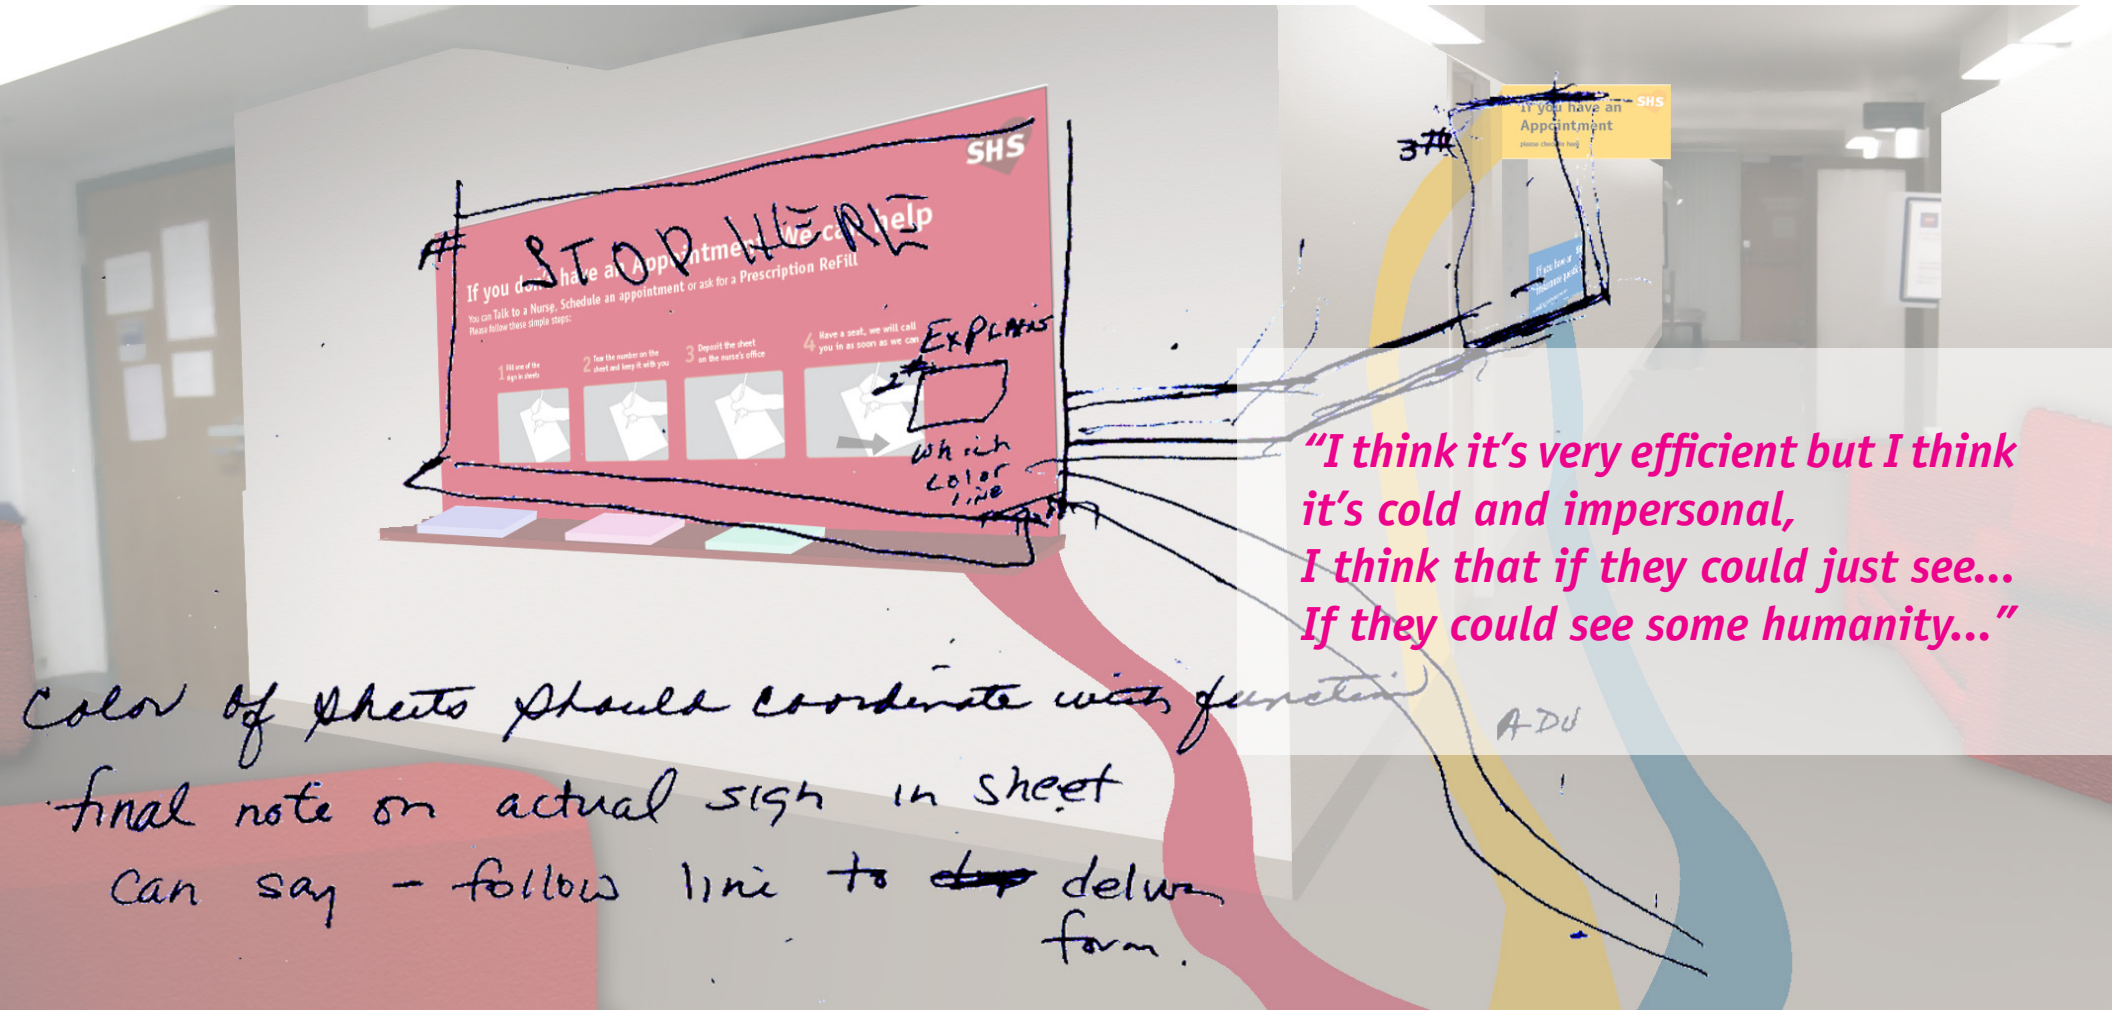 SHS
STOP HERE
If you don't have an Appointment, We can help
You can Talk to a Nurse, Schedule an appointment or ask for a Prescription ReFill
Please follow these simple steps:
1 Fill one of the
sign in sheets
2 Tear the number on the
sheet and keep it with you
3 Deposit the sheet
on the nurse's office
4 Have a seat, we will call
you in as soon as we can
EXPLAINS
2#
which
color
line
3#
If you have an
Appointment
please check in here
SHS
If you have an
insurance
“I think it’s very efficient but I think
it’s cold and impersonal,
I think that if they could just see...
If they could see some humanity...”
Color of sheets should coordinate with function
ADU
final note on actual sign in sheet
can say – follow line to deliver
form.